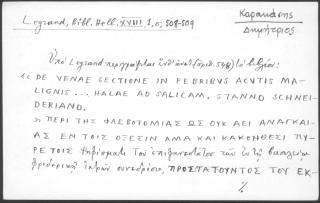 Legrand, Bibl. Hell. XVIII, 1, σ. 508-509
Καρακάσης
Δημήτριος
Ὑπὸ Legrand περιγράφεται ὑπ' ἀριθ. 548) τὸ βιβλίον:
« DE VENAE SECTIONE IN FEBRIBUS ACUTIS MA-
LIGNIS ... HALAE AD SALICAM, STANNO SCHNEI-
DERIANO.
» ΠΕΡΙ ΤΗΣ ΦΛΕΒΟΤΟΜΙΑΣ ΩΣ ΟΥΚ ΑΕΙ ΑΝΑΓΚΑΙ-
ΑΣ ΕΝ ΤΟΙΣ ΟΞΕΣΙΝ ΑΜΑ ΚΑΙ ΚΑΚΟΗΘΕΣΙ ΠΥ-
ΡΕΤΟΙΣ Ψηφίσματι Τοῦ ἐπιφανεστάτου τῶν ἐν τῇ βασιλείῳ
φριδερικῇ ἰατρῶν συνεδρίου, ΠΡΟΣΤΑΤΟΥΝΤΟΣ ΤΟΥ ΕΚ-
·/.